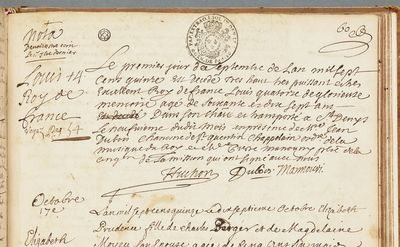 Nota
60
Louis 14
Roy de
france
Le premier jour de septembre de Lan mil sept
Cens quinze est decedé tres haut tres puissant et tres
Excellent Roy de france Louis quatorze de glorieuse
memoire agé de soixante et dix sept ans
dans son chateau et transporté a St Denys
Le neufvieme dudit mois en presence de Mre Jean
Dubois Chanoine de St Quentin Chappelain ordre de la
musique du Roy et Mre mannoury prestre de la
Congon de la mission qui ont signé avec nous
huchon Dubois Mannoury
Octobre
17e
Elizabeth
Lan mil sept cens quinze Le dix septieme Octobre Elizabeth
Prudence fille de charles Berger et de Magdelaine
son Epouse agée de